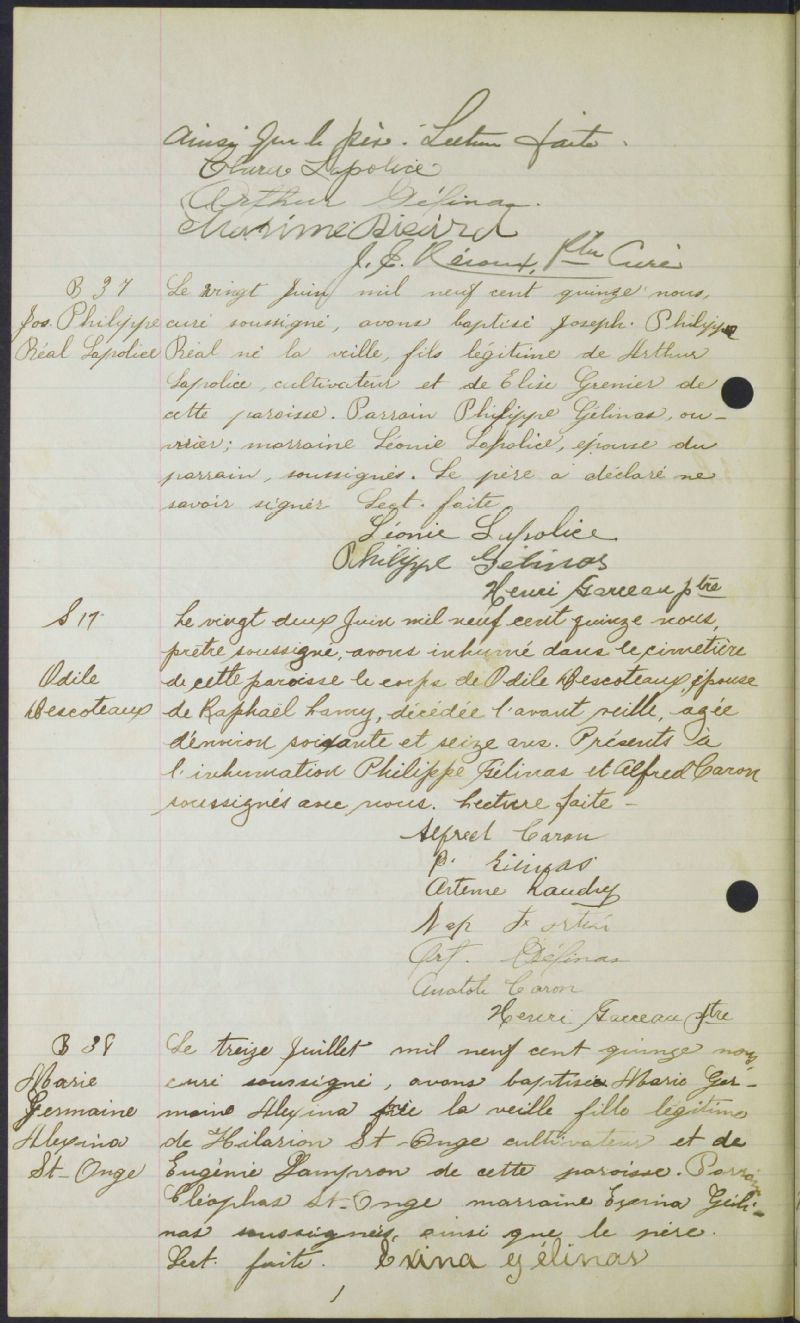 ainsi que le père. Lecture faite.
Lapolice
Arthur Gélinas.
Maxime Bisard
J. E. Héroux, Ptre Curé
B 37
Jos. Philippe
Réal Lapolice
Le vingt Juin mil neuf cent quinze nous,
curé soussigné, avons baptisé Joseph. Philippe
Réal né la veille, fils légitime de Arthur
Lapolice, cultivateur et de Elise Grenier de
cette paroisse. Parrain Philippe Gélinas, ou-
vrier; marraine Léonie Lapolice, épouse du
parrain, soussignés. Le père a déclaré ne
savoir signer Lect. faite
Léonie Lapolice
Philippe Gélinas
Henri Garceau ptre
S 17
Odile
Descoteaux
Le vingt deux Juin mil neuf cent quinze nous,
prêtre soussigné, avons inhumé dans le cimetière
de cette paroisse le corps de Odile Descoteaux, épouse
de Raphaël Lamy, décédée l'avant veille, agée
d'environ soixante et seize ans. Présents à
l'inhumation Philippe Gélinas et Alfred Caron
soussignés avec nous. Lecture faite –
Alfred Caron
P. Gélinas
Arteme Landry
Nap Fortin
Art. Gélinas
Anatole Caron
Henri Garceau ptre
B 38
Marie
Germaine
Alexina
St-Onge
Le treize Juillet mil neuf cent quinze nous
curé soussigné, avons baptisé Marie Ger-
maine Alexina née la veille fille légitime
de Hilarion St-Onge cultivateur et de
Eugénie Lampron de cette paroisse. Parrain
Cléophas St-Onge marraine Exerina Géli-
nas soussignés, ainsi que le père.
Lect. faite. Exina gélinas